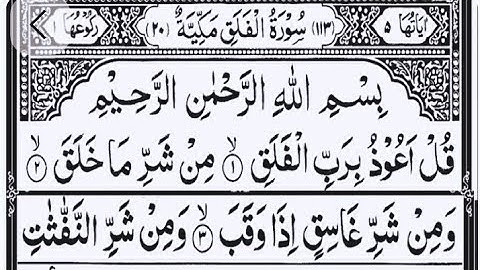 اٰیَاتُهَا ٥ (١١٣) سُوْرَةُ الْفَلَقِ مَكِّیَّةٌ (٢٠) رُكُوْعُهَا ١
بِسْمِ اللهِ الرَّحْمٰنِ الرَّحِیْمِ
قُلْ اَعُوْذُ بِرَبِّ الْفَلَقِ ۙ﴿١﴾ مِنْ شَرِّ مَا خَلَقَ ۙ﴿٢﴾
وَمِنْ شَرِّ غَاسِقٍ اِذَا وَقَبَ ۙ﴿٣﴾ وَمِنْ شَرِّ النَّفّٰثٰتِ